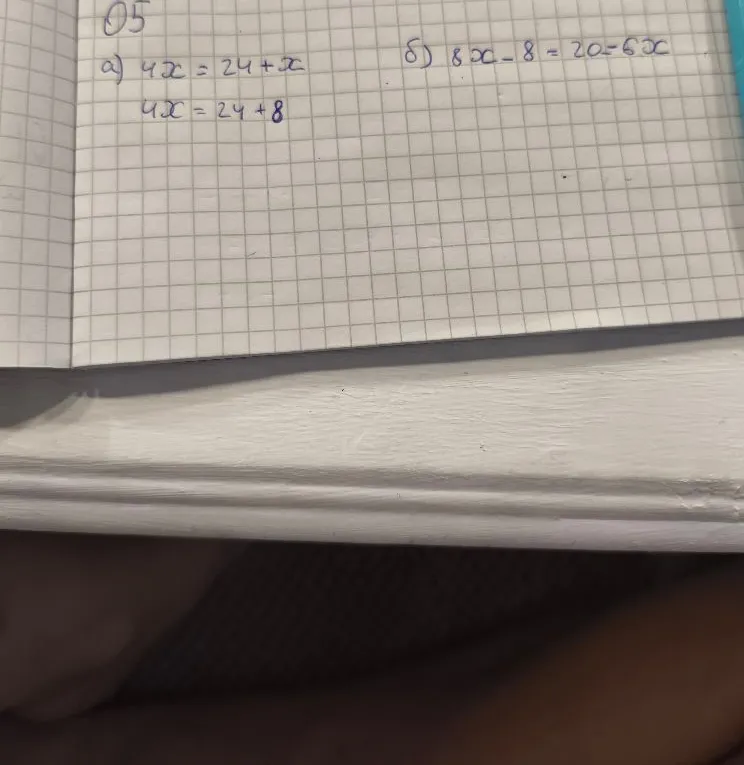 05
а) 4x = 24 + x
4x = 24 + 8
б) 8x - 8 = 20 - 6x